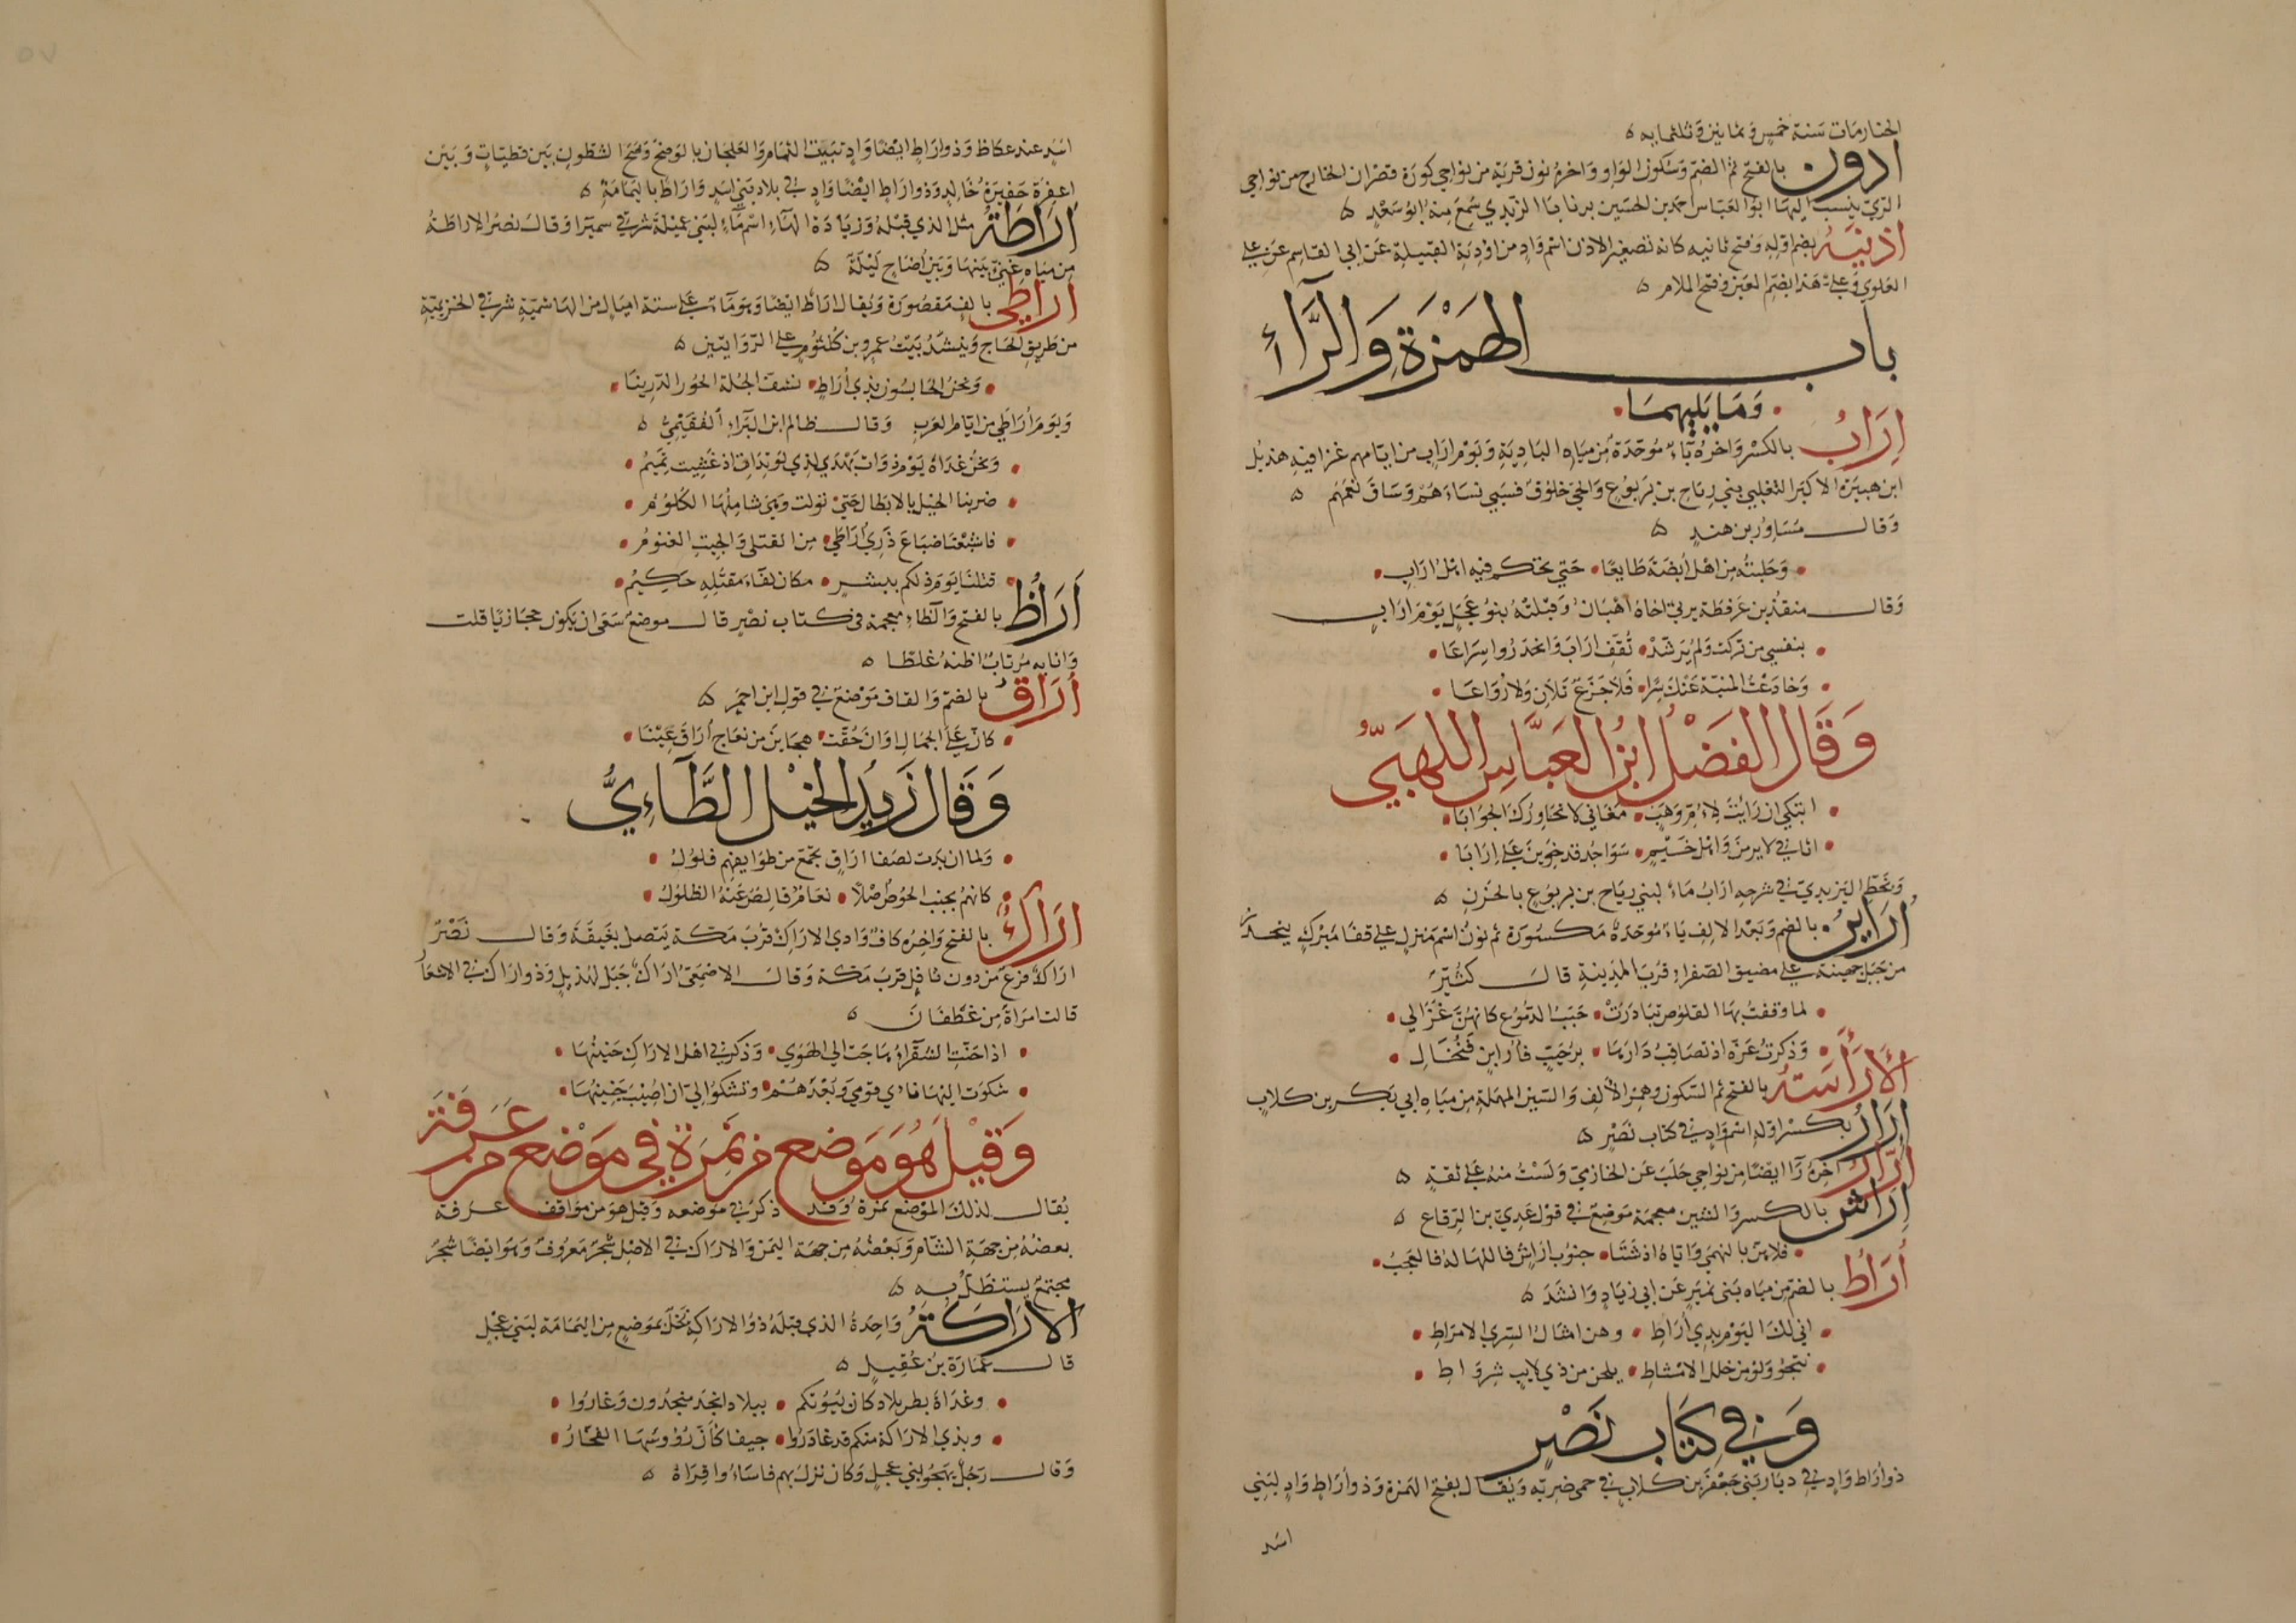 الخنارمات سنة خمس وثمانين وثلثمايه ه
ادون بالفتح ثم الضم وسكون الواو واخره نون قرية من نواحي كورة قصران الخارج من نواحي
الري ينسب اليها ابو العباس احمد بن الحسين بن بابا الزيدي سمع منه ابو سعد ه
اذنية بضم اوله وفتح ثانيه كانه تصغير الاذن اسم واد من اودية القبلية عن ابي القاسم عن علي
العلوي وعلي هذا بضم العين وفتح اللام ه
باب الهمزة والرّاء
وما يليهما
اراب بالكسر واخره باء موحدة من مياه البادية ويوم اراب من ايامهم غزا فيه هذيل
ابن هبيرة الاكبر التغلبي بني رياح بن يربوع والحي خلوف فسبي نساءهم وساق نعمهم ه
وقال مساور بن هند ه
وجلبته من اهل أبضة طايعا حتي تحكم فيه اهل اراب
وقال منقذ بن عرفطة يرثي اخاه اهبان وقتلته بنو عجل يوم اراب
بنفسي من تركت ولم يرشد تقف اراب وانحدروا سراعا
وخادعت المنية عنك سرا فلا جزع تلان ولا رواعا
وقال الفضل ابن العباس اللهبي
اتبكي ان رايت لام وهب مغاني لا تحاورك الجوابا
اثافي لا يرمن واهل خيم سواجد قد خوين علي ارابا
وبخط اليزيدي في شرحه اراب ماء لبني رياح بن يربوع بالحزن ه
أراين بالضم وبعد الالف ياء موحدة مكسورة ثم نون اسم منزل علي قفا مبرك ينحدر
من جبل جهينة علي مضيق الصفراء قرب المدينة قال كثير
لما وقفت بها القلوص تبادرت حبب الدموع كانهن عزالي
وذكرت عزة اذ تصاقب دارها برحيب فارابن فنخال
الأرأسة بالفتح ثم السكون وهمز الألف والسين المهملة من مياه ابي بكر بن كلاب
ارار بكسر اوله اسم واد في كتاب نصر ه
ارار اخره رآ ايضا من نواحي حلب عن الخازمي ولست منه علي ثقة ه
اراش بالكسر والشين معجمة موضع في قول عدي بن الرقاع ه
فلا هن بالبهمي واياه اذ شتا جنوب اراش فاللهاله فالعجب
أراط بالضم من مياه بني نمير عن ابي زياد وانشد ه
اني لك اليوم بذي أراط وهن امثال السري الامراط
تنجو ولو من خلل الامشاط يلحن من ذي لايب شرواط
وفي كتاب نصر
ذو أراط واد في ديار بني جعفر بن كلاب في حمى ضرية ويقال بفتح الهمزة وذو أراط واد لبني
اسد
اسد عند عكاظ وذو اراط ايضا واد تنبت الثمام والعلجان بالوضح وضح الشطون بين قطيات وبين
اعفرة حفيرة خالد وذو اراط ايضا واد في بلاد بني اسد واراط باليمامة ه
اراطة مثل الذي قبله وزيادة الهاء اسم ماء لبني عميلة شرقي سميرا وقال نصر الاراطة
من مياه غني بينها وبين أضاخ ليلة ه
اراطي بالف مقصورة ويقال اراط ايضا وهو ماء علي ستة اميال من الهاشمية شرقي الخزيمية
من طريق الحاج وينشد بيت عمرو بن كلثوم علي الروايتين ه
ونحن الحابسون بذي أراط تسف الجلة الخور الدرينا
ويوم أراطي من ايام العرب وقال ظالم ابن البراء الفقيمي ه
ونحن غداة يوم ذوات بهدي لذي الوتدات اذ غشيت تميم
ضربنا الخيل بالابطال حتي تولت وهي شاملها الكلوم
فاشبعنا ضباع ذري أراطي من القتلي والجيت الغنوم
قتلنا يوم ذلكم ببشر مكان لقاء مقتله حكيم
أراظ بالفتح والظاء معجمة في كتاب نصر قال موضع سقي ان يكون حجازيا قلت
وانا به مرتاب اظنه غلطا ه
أراق بالضم والقاف موضع في قول ابن احمر ه
كان علي الجمال اوان حفت هجاين من نعاج أراق عينا
وقال زيد الخيل الطاءي
ولما ان بدت لصفا اراق تجمع من طوايفهم فلول
كانهم بجنب الحوض اصلا نعام قالص عنه الظلول
اراك بالفتح واخره كاف وادي الاراك قرب مكة يتصل بغيقة وقال نصر
اراك فرع من دون ثافل قرب مكة وقال الاصمعي اراك جبل لهذيل وذو اراك في الاشعا
قالت امراة من غطفان ه
اذا حنت الشقراء هاجت الي الهوي وذكرني اهل الاراك حنينها
شكوت اليها نأي قومي وبعدهم وتشكو الي ان اصيب جنينها
وقيل هو موضع من نمرة في موضع من عرفة
يقال لذلك الموضع نمرة وقد ذكر في موضعه وقيل هو من مواقف عرفة
بعضه من جهة الشام وبعضه من جهة اليمن والاراك في الاصل شجر معروف وهو ايضا شجر
مجتمع يستظل به ه
الاراكة واحدة الذي قبله ذو الاراكة نخل بموضع من اليمامة لبني عجل
قال عمارة بن عقيل ه
وغداة بطن بلاد كان بيوتكم ببلاد انجد منجدون وغاروا
وبذي الاراكة منكم قد غادروا جيفا كأن رؤوسها الفخار
وقال رجل يهجو بني عجل وكان نزل بهم فاساءوا قراه ه